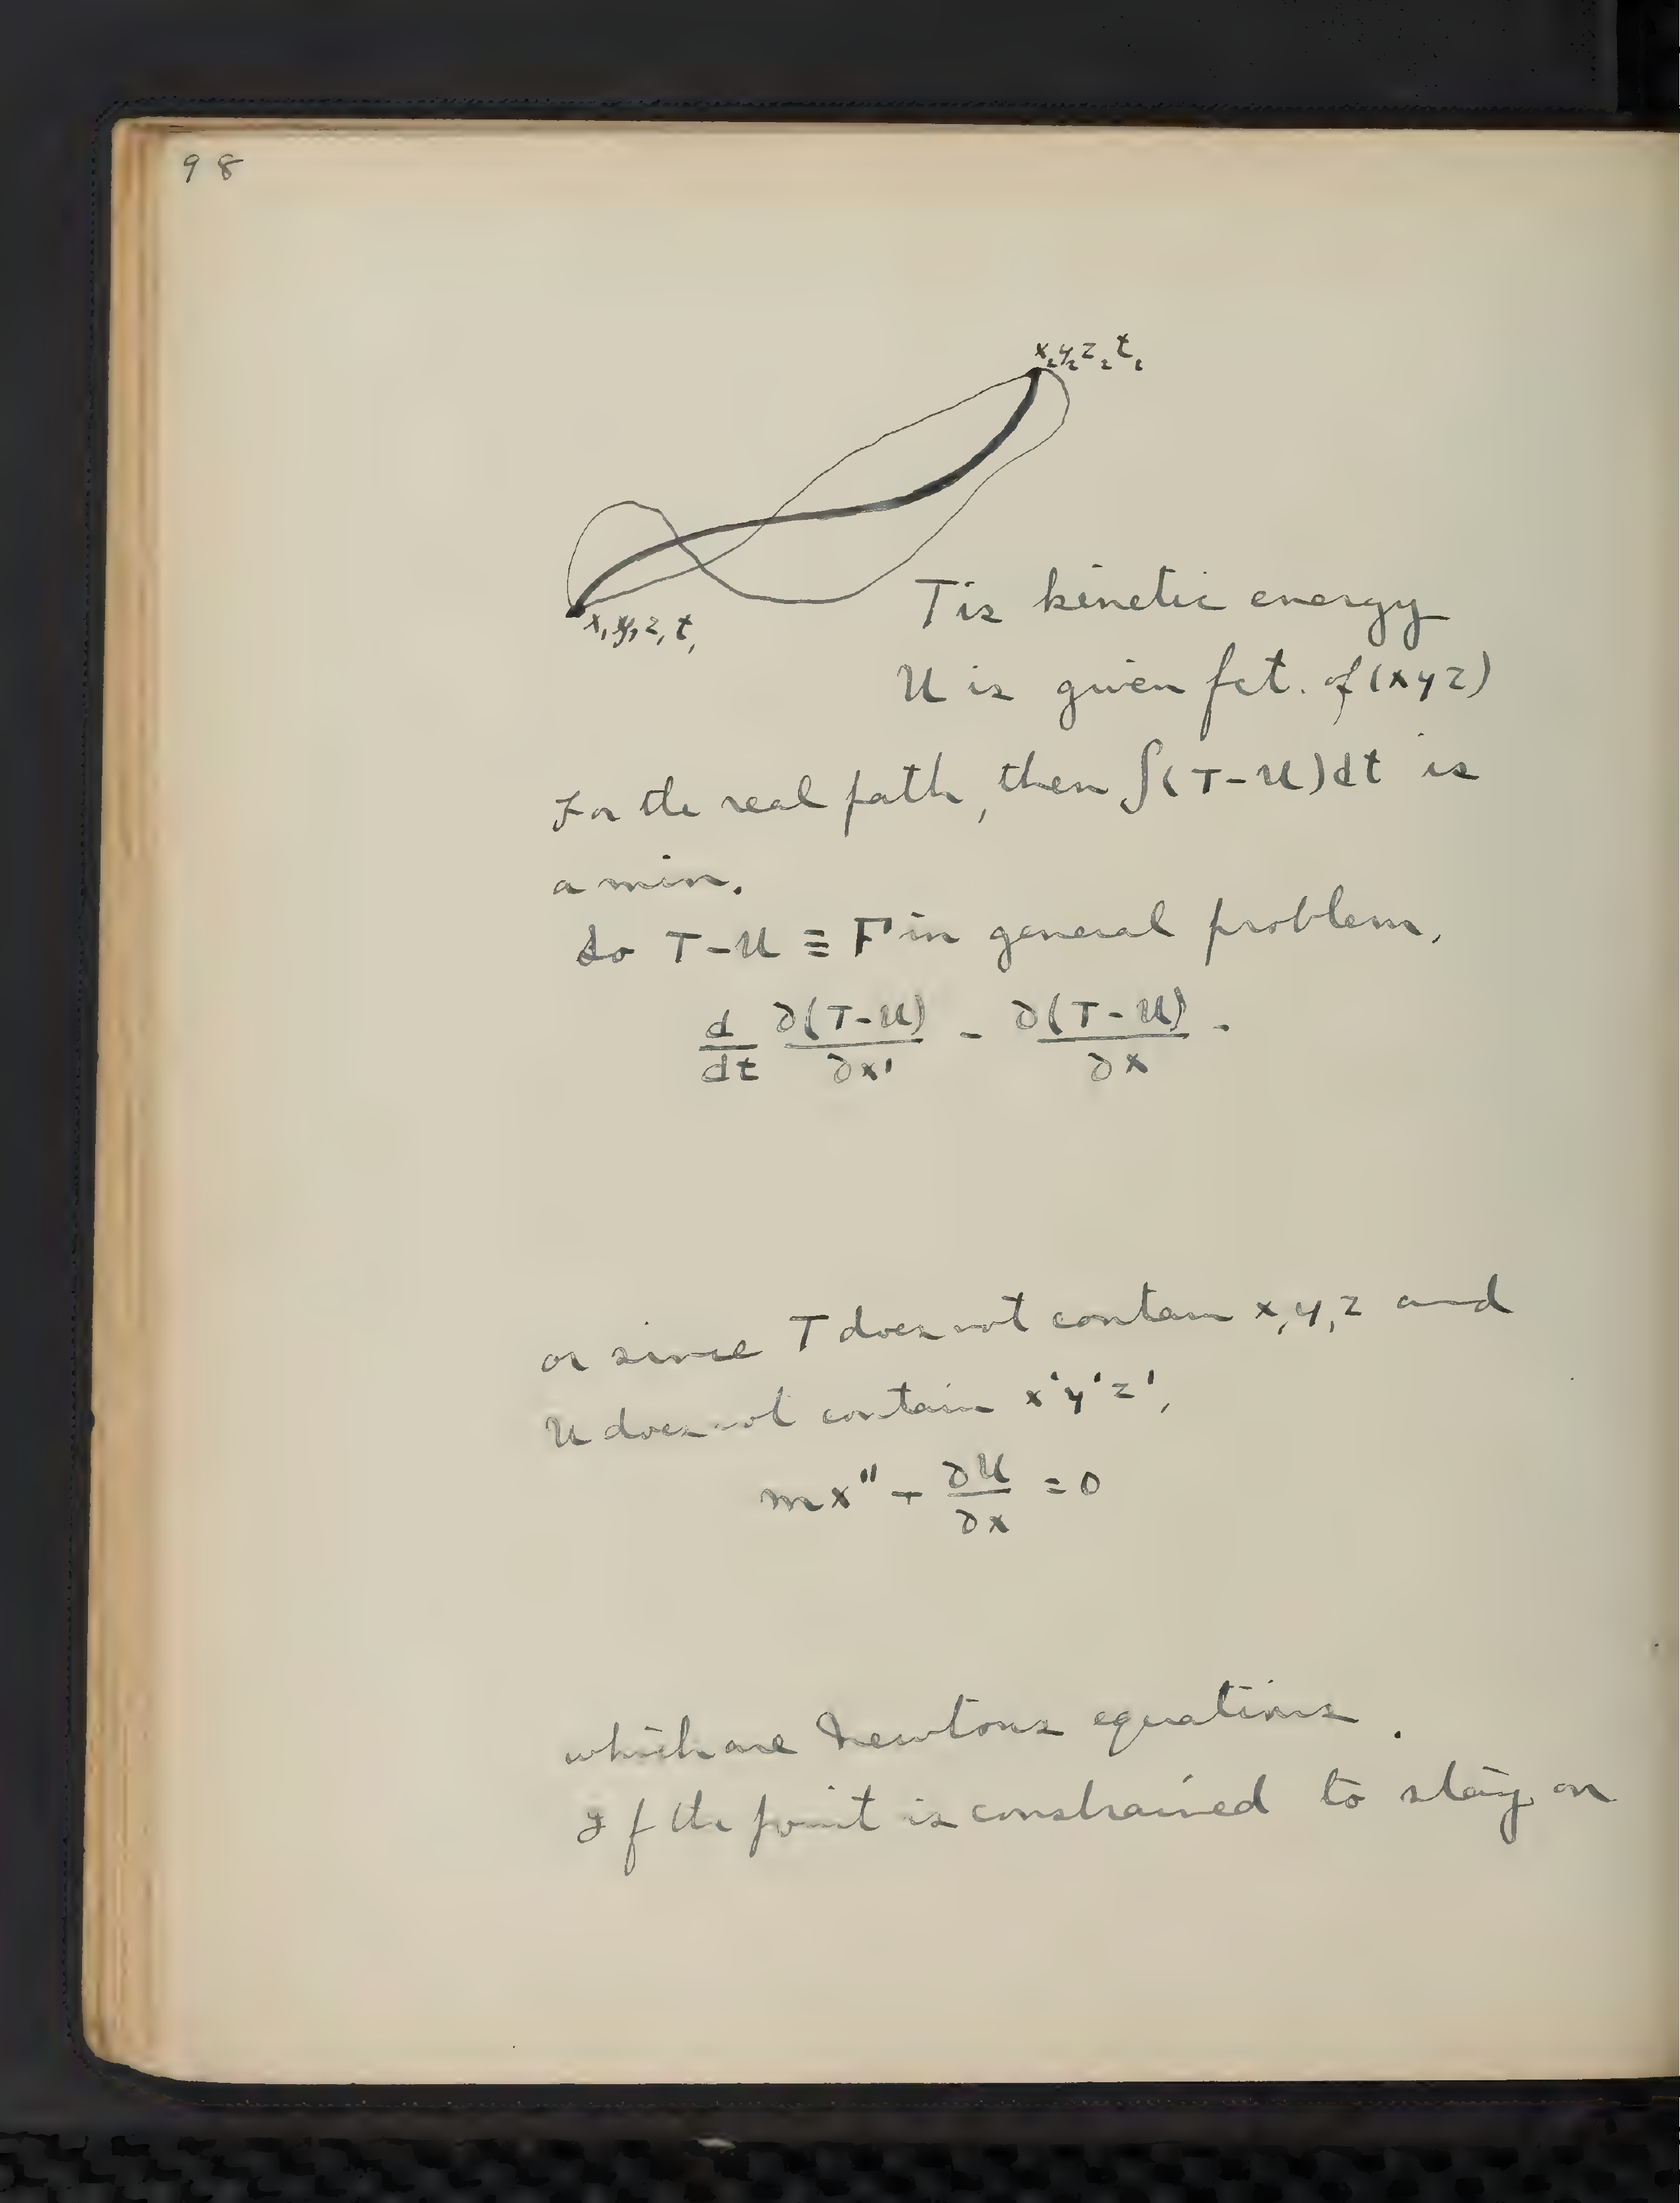 98
x₂y₂z₂t₂
x₁y₁z₁t₁
T is kinetic energy
U is given fct. of (xyz)
For the real path, then ∫(T-U)dt is
a min.
So T-U ≡ F in general problem,
d/dt ∂(T-U)/∂x' - ∂(T-U)/∂x .
or since T does not contain x,y,z and
U does not contain x'y'z',
mx'' + ∂U/∂x = 0
which are Newtons equations.
If the point is constrained to stay on